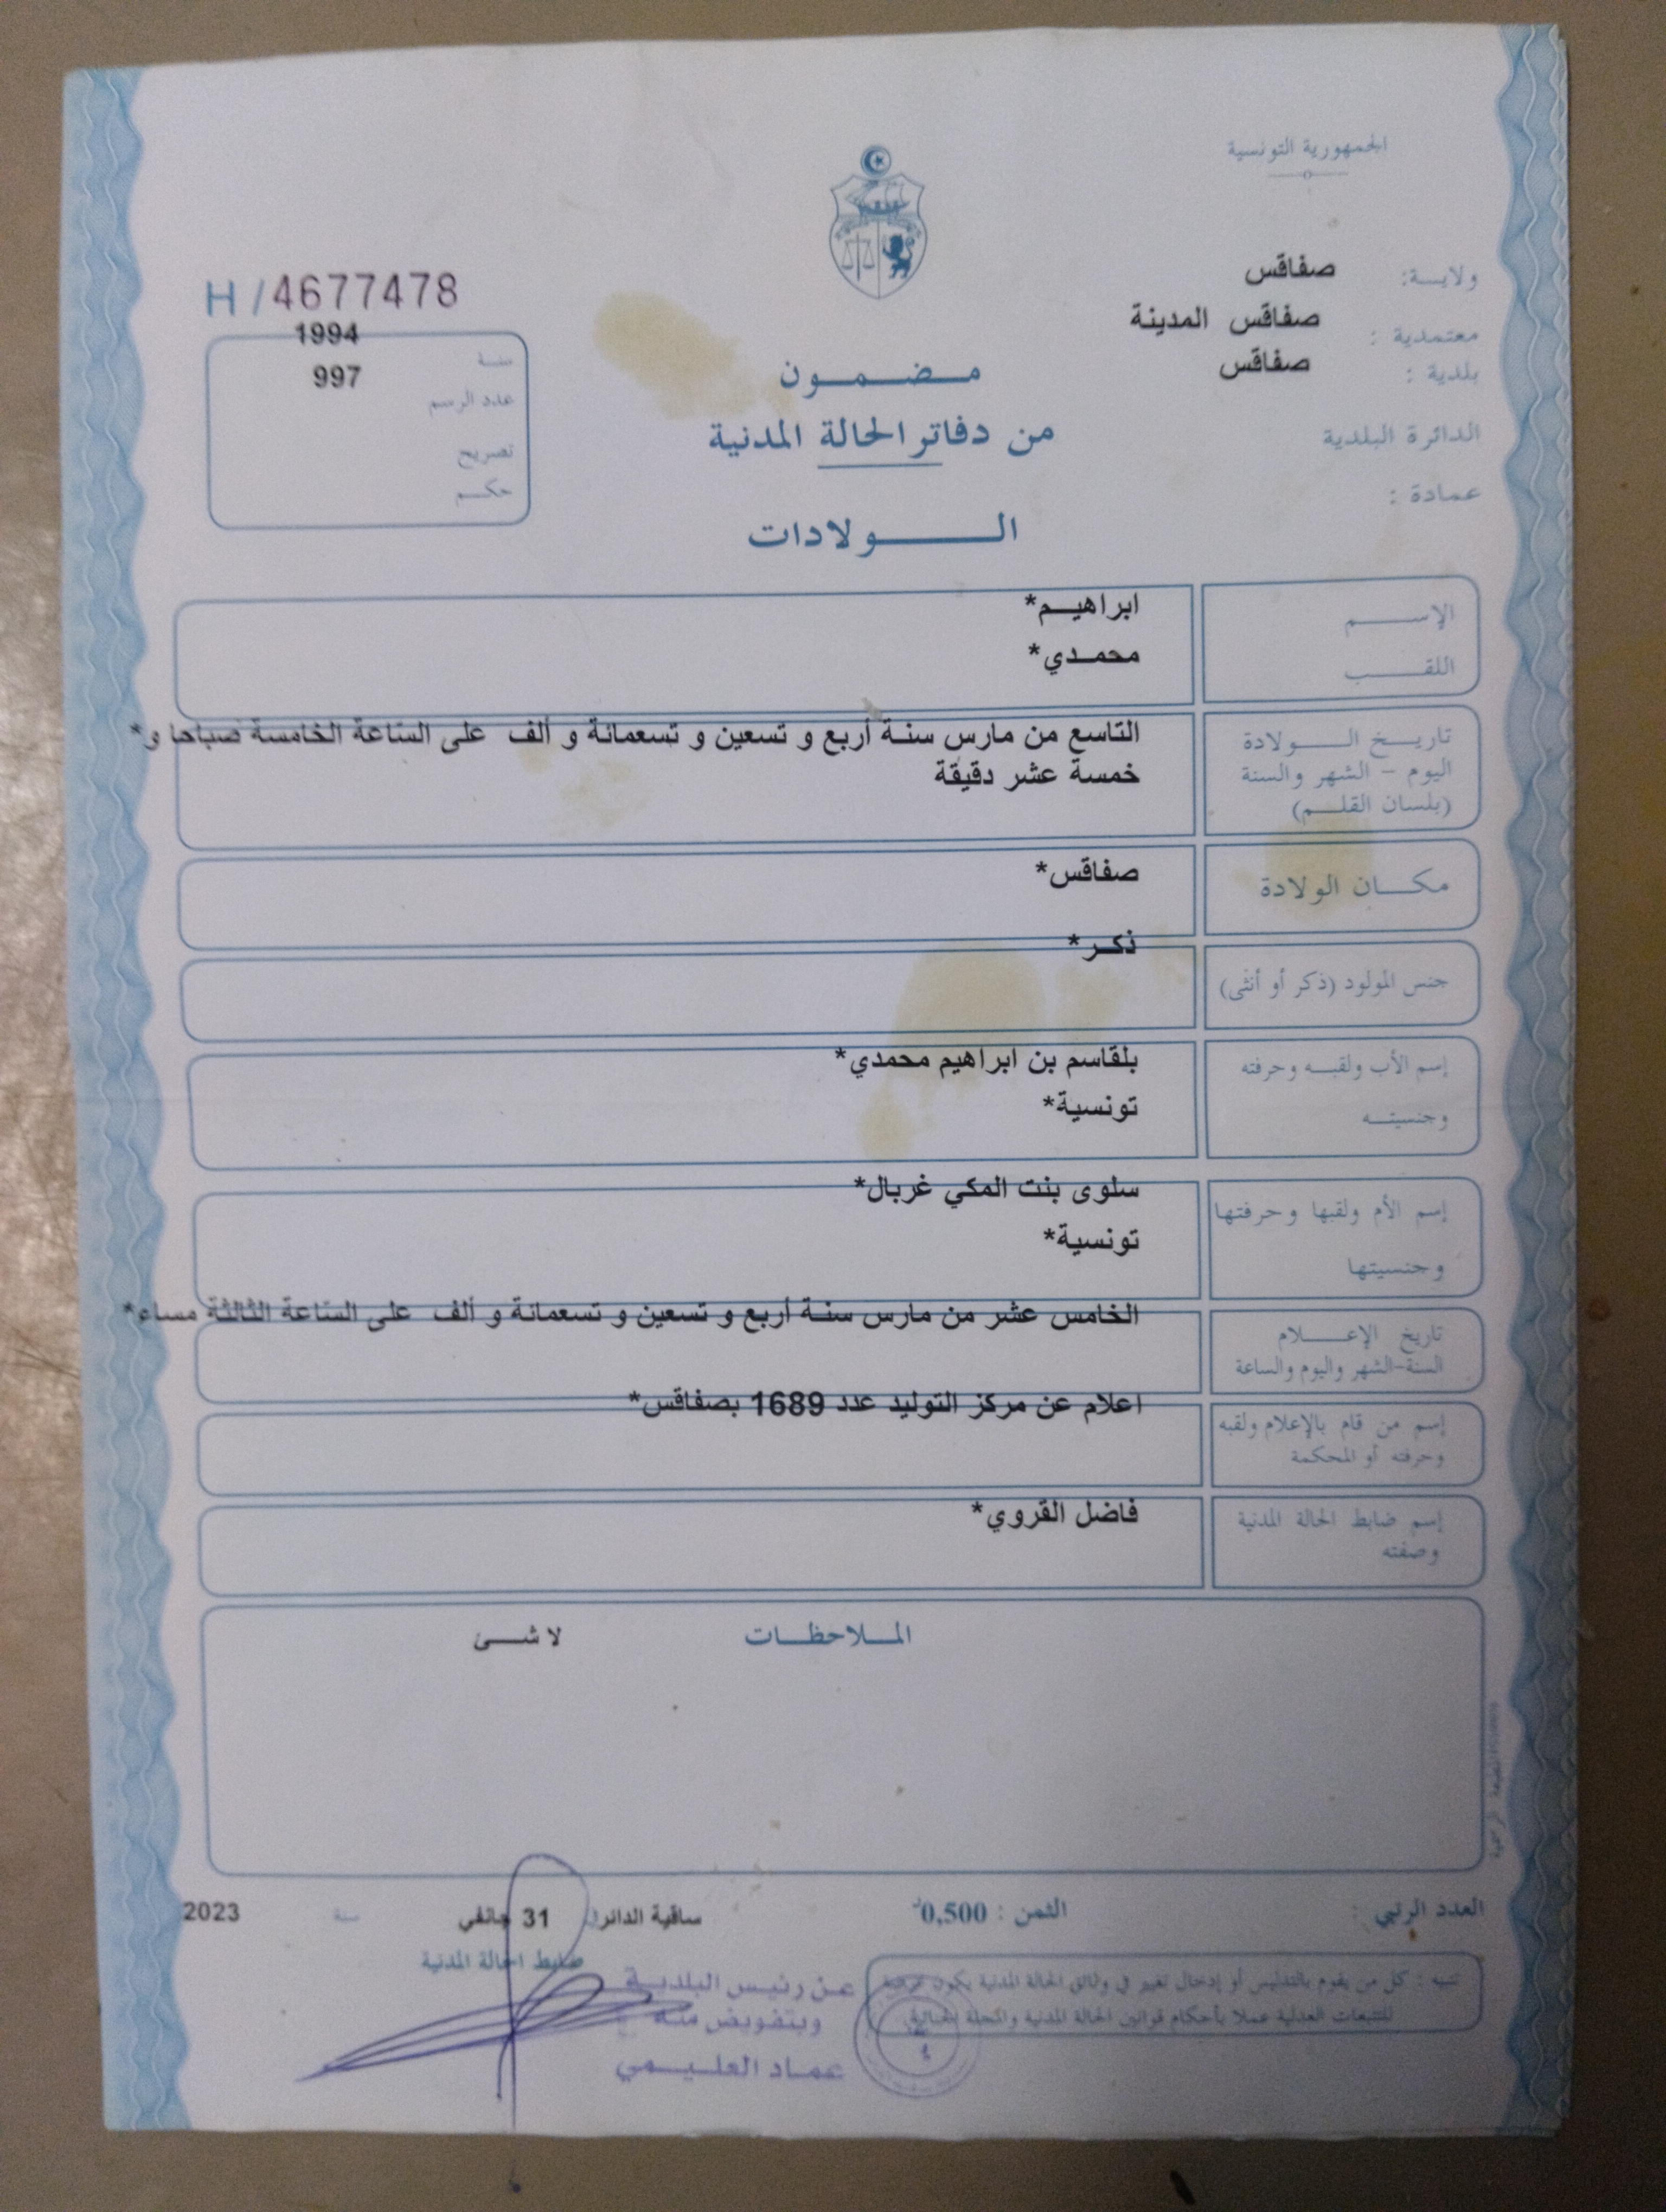 الجمهورية التونسية
ولاية: صفاقس
معتمدية: صفاقس المدينة
بلدية: صفاقس
الدائرة البلدية
عمادة:
H/4677478
سنة 1994
عدد الرسم 997
تصريح
حكم
مضمون
من دفاتر الحالة المدنية
الولادات
الإسم ابراهيم*
اللقب محمدي*
تاريخ الولادة
اليوم - الشهر والسنة
(بلسان القلم)
التاسع من مارس سنة أربع و تسعين و تسعمائة و ألف على الساعة الخامسة صباحا و*
خمسة عشر دقيقة
مكان الولادة صفاقس*
جنس المولود (ذكر أو أنثى) ذكر*
إسم الأب ولقبه وحرفته
وجنسيته
بلقاسم بن ابراهيم محمدي*
تونسية*
إسم الأم ولقبها وحرفتها
وجنسيتها
سلوى بنت المكي غربال*
تونسية*
تاريخ الإعلام
السنة-الشهر واليوم والساعة
الخامس عشر من مارس سنة أربع و تسعين و تسعمائة و ألف على الساعة الثالثة مساء*
إسم من قام بالإعلام ولقبه
وحرفته أو المحكمة
اعلام عن مركز التوليد عدد 1689 بصفاقس*
إسم ضابط الحالة المدنية
وصفته
فاضل القروي*
الملاحظات لا شئ
العدد الرتبي :
الثمن : 0,500د
ساقية الدائر 31 جانفي سنة 2023
ضابط الحالة المدنية
عن رئيس البلدية
وبتفويض منه
عماد العليمي
تنبيه : كل من يقوم بالتدليس أو إدخال تغيير في وثائق الحالة المدنية يكون عرضة
للتتبعات العدلية عملا بأحكام قوانين الحالة المدنية والمجلة الجنائية